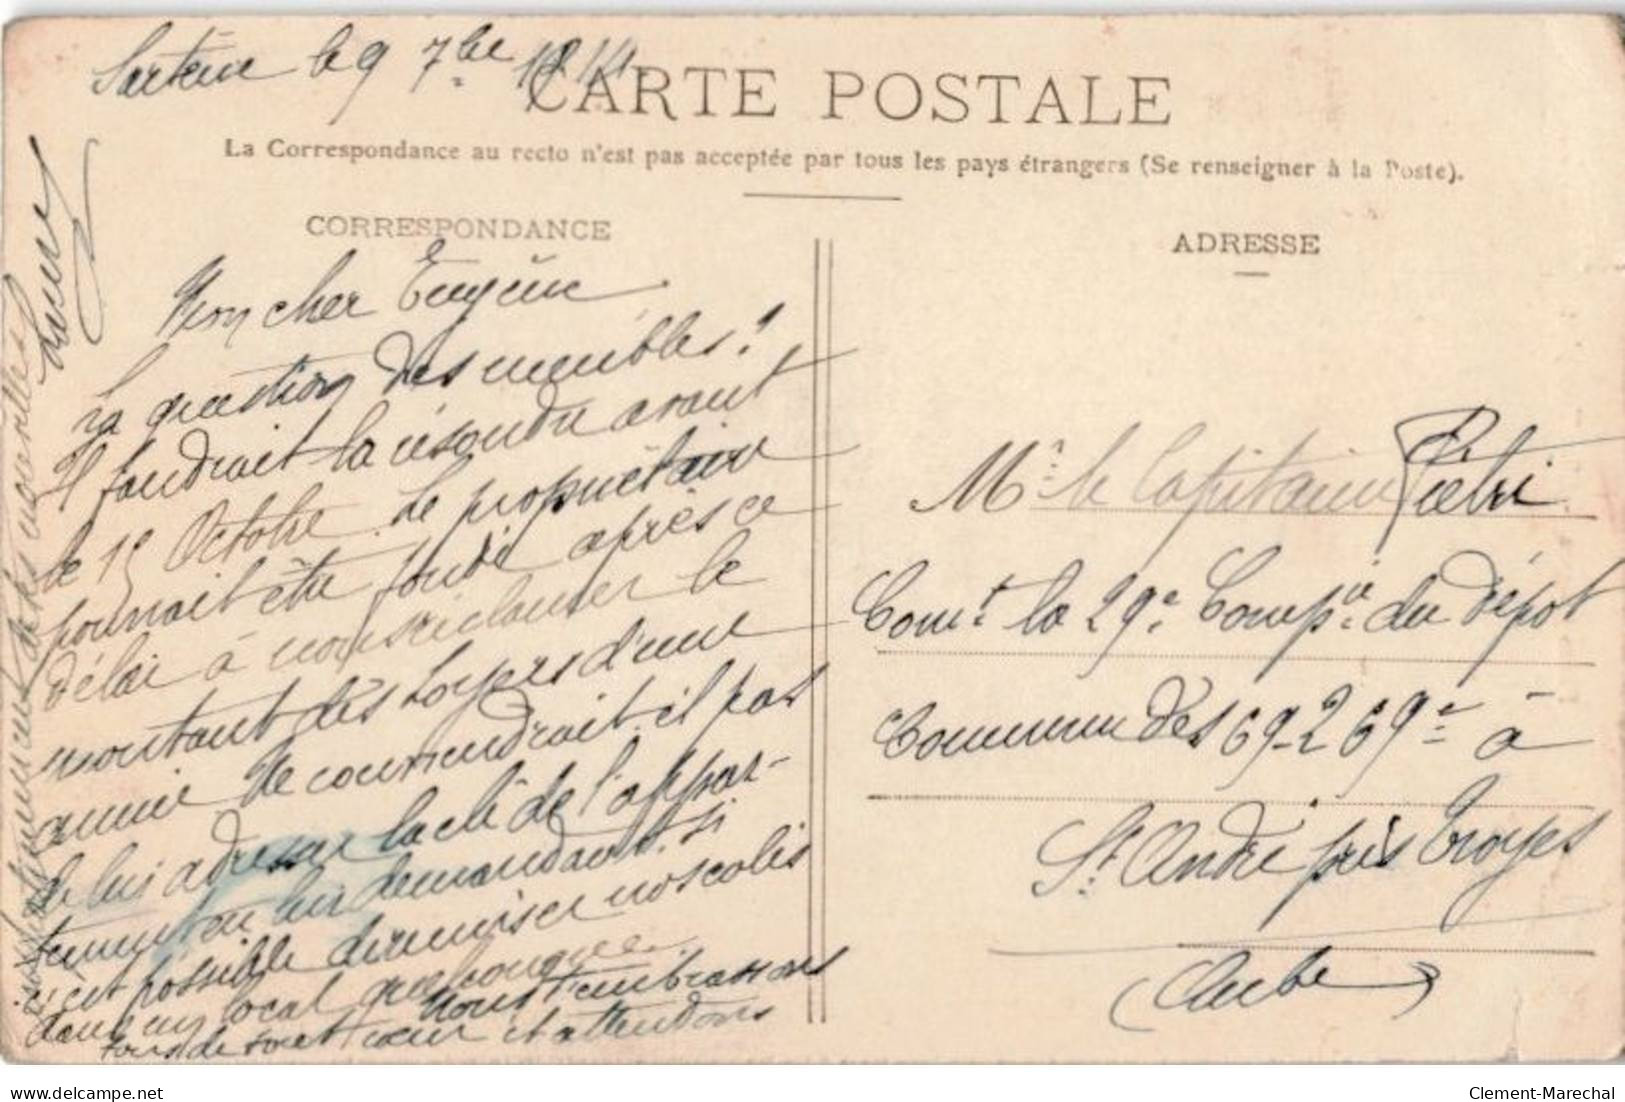 Sartène le 9 7bre 1914
CARTE POSTALE
La Correspondance au recto n'est pas acceptée par tous les pays étrangers (Se renseigner à la Poste).
CORRESPONDANCE
Mon cher Eugène
La question des meubles ?
Il faudrait la résoudre avant
le 15 Octobre. Le propriétaire
pourrait être fondé après ce
délai à nous réclamer le
montant des loyers d'une
année Ne conviendrait-il pas
de lui adresser la clé de l'appar-
tement en lui demandant si
c'est possible de remiser nos colis
dans un local quelconque
Nous t'embrassons
tous de tout cœur et attendons
impatiemment de tes nouvelles
ADRESSE
Mr. le Capitaine Pietri
Comt. la 29e Compie du dépôt
commun des 69-269e à
St. André près Troyes
(Aube)
delcampe.net
Clement-Marechal